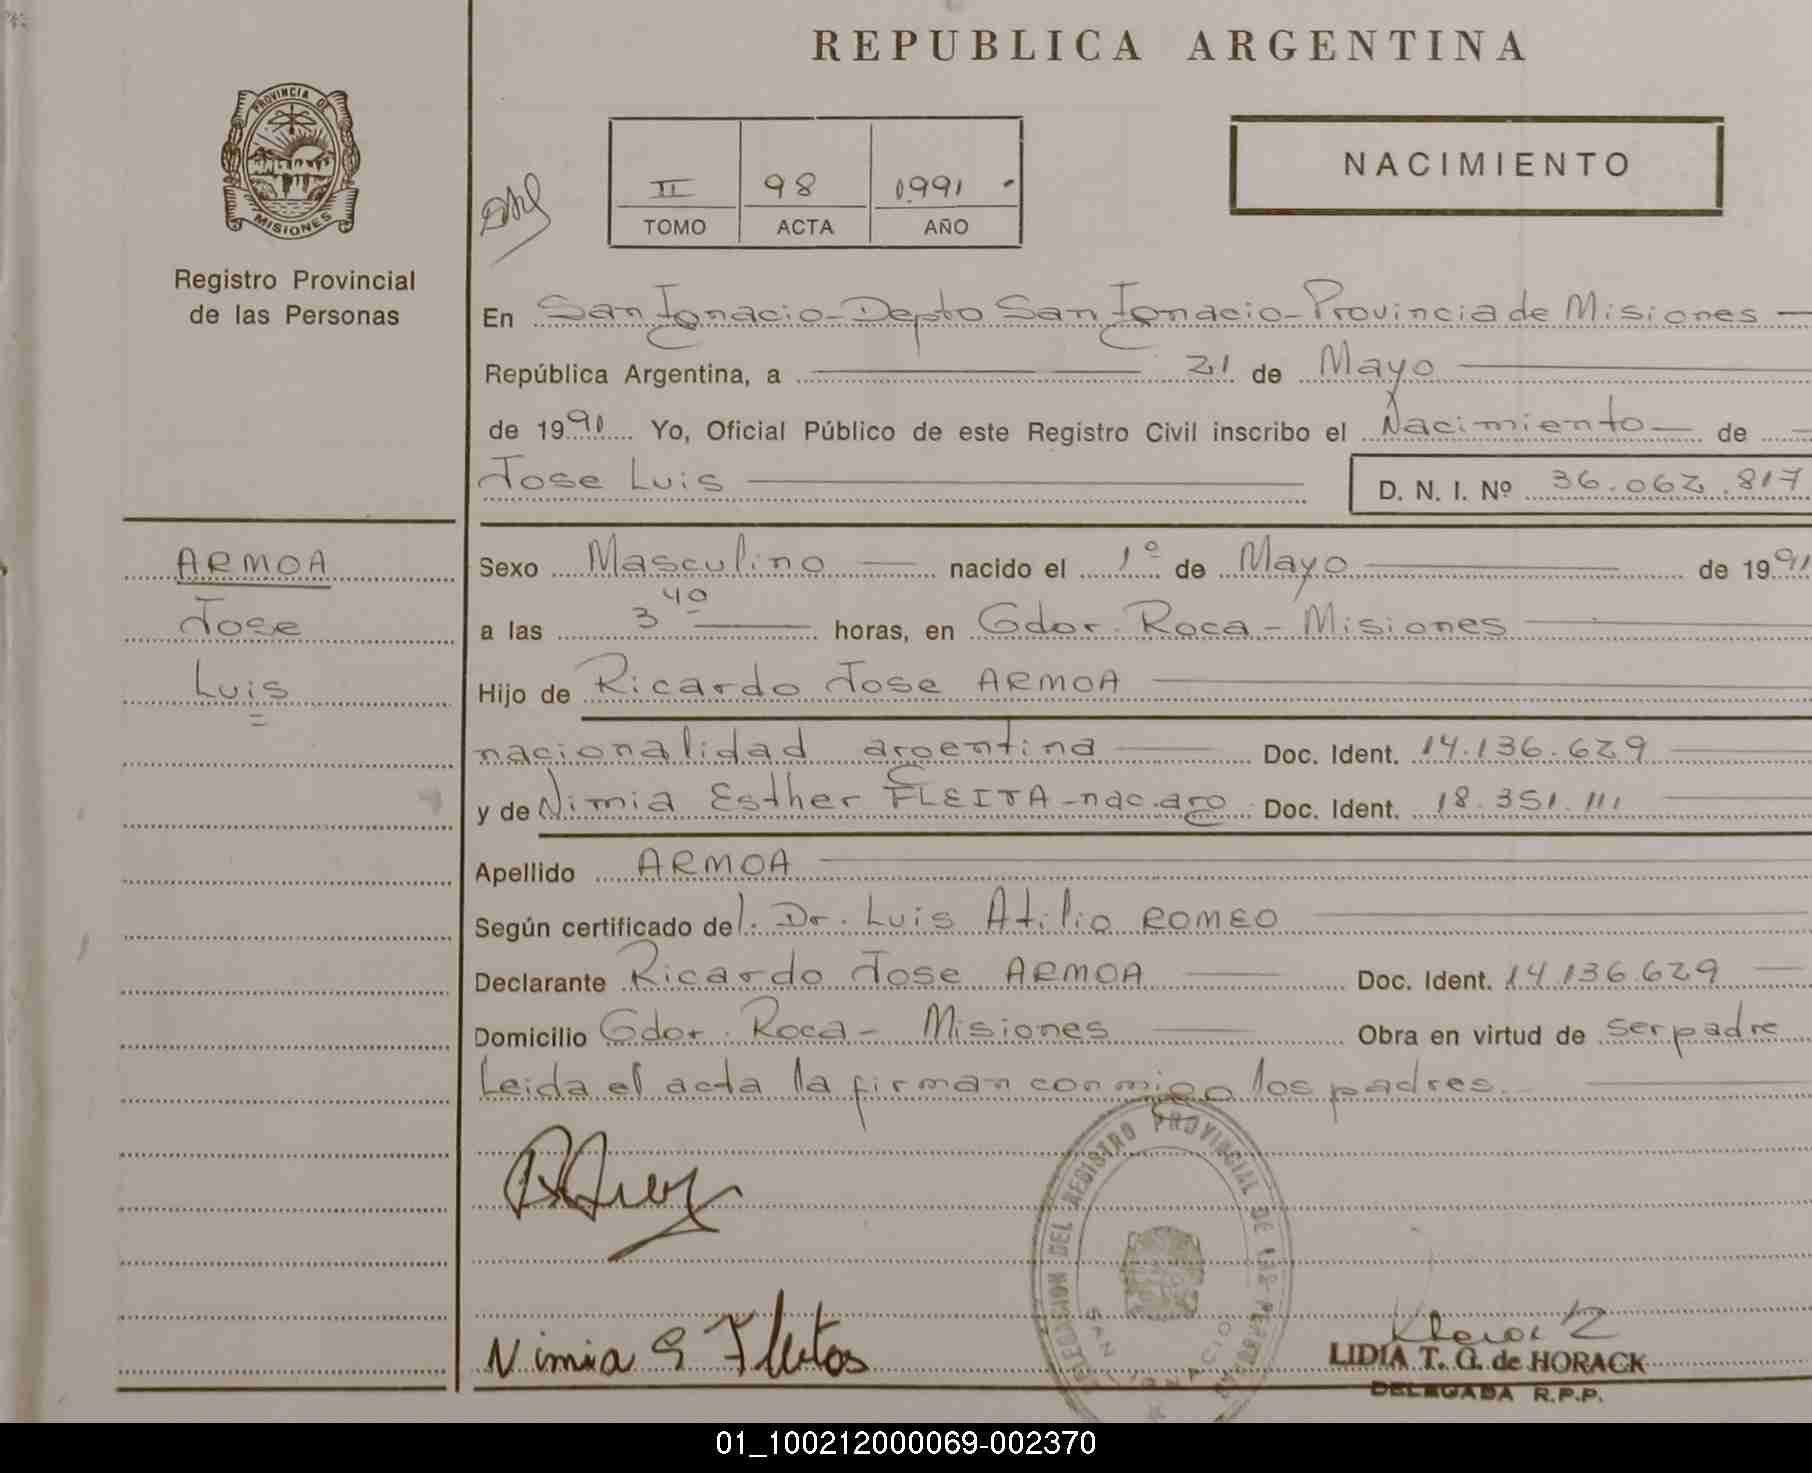 REPUBLICA ARGENTINA
PROVINCIA DE
MISIONES
Registro Provincial
de las Personas
II 98 1991
TOMO ACTA AÑO
NACIMIENTO
En San Ignacio - Depto San Ignacio - Provincia de Misiones
República Argentina, a 21 de Mayo
de 1991 Yo, Oficial Público de este Registro Civil inscribo el Nacimiento de
Jose Luis D. N. I. Nº 36.062.817
ARMOA
Jose
Luis
Sexo Masculino nacido el 1º de Mayo de 1991
a las 3 40 horas, en Gdor. Roca - Misiones
Hijo de Ricardo Jose ARMOA
nacionalidad argentina Doc. Ident. 14.136.629
y de Nimia Esther FLEITA - nac. arg Doc. Ident. 18.351.111
Apellido ARMOA
Según certificado del. Dr. Luis Atilio ROMEO
Declarante Ricardo Jose ARMOA Doc. Ident. 14.136.629
Domicilio Gdor. Roca - Misiones Obra en virtud de ser padre
Leida el acta la firman conmigo los padres.
DELEGACION DEL REGISTRO PROVINCIAL DE LAS PERSONAS
SAN IGNACIO
Nimia E Fleitas
LIDIA T. G. de HORACK
DELEGADA R.P.P.
01_100212000069-002370